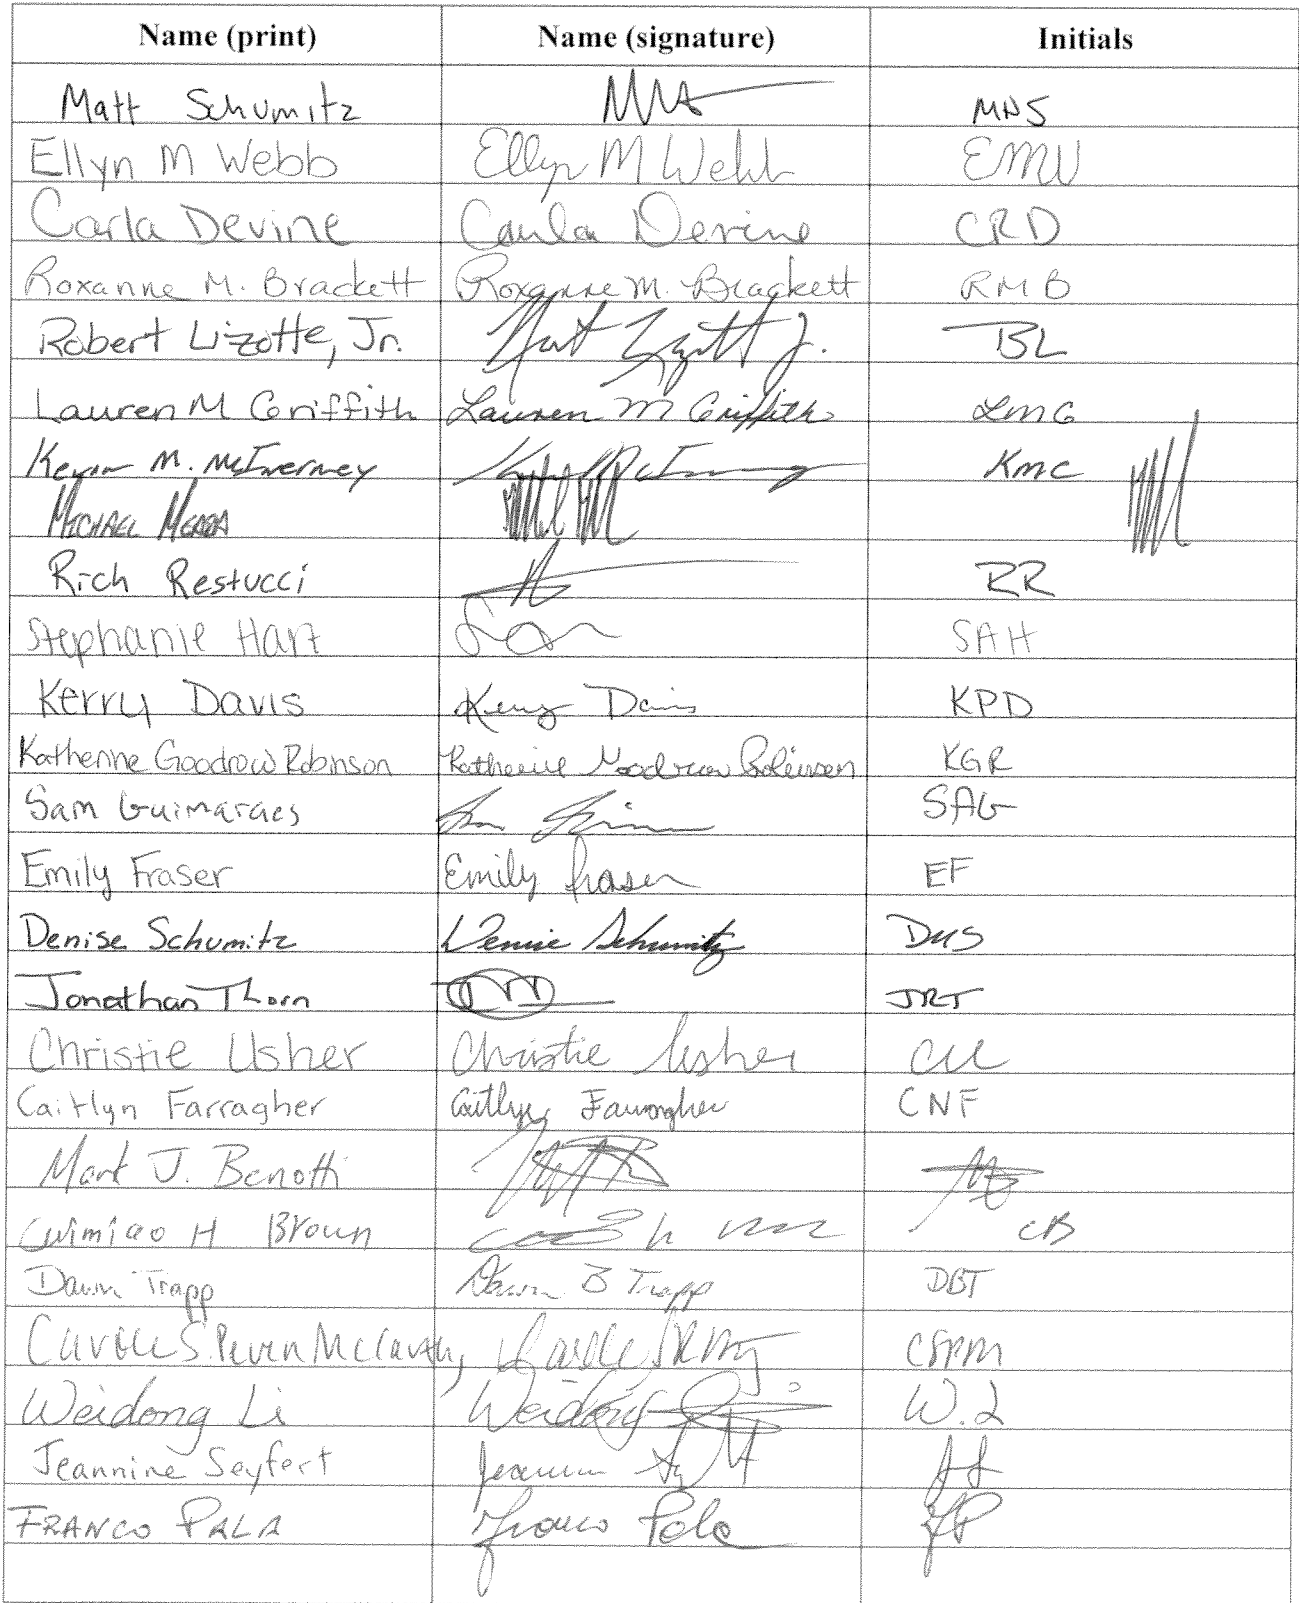 Name (print) Name (signature) Initials
Matt Schumitz MNS
Ellyn M Webb Ellyn M Webb EMW
Carla Devine Carla Devine CRD
Roxanne M. Brackett Roxanne M. Brackett RMB
Robert Lizotte, Jr. Jr. BL
Lauren M Griffith Lauren M Griffith LMG
Kevin M. McInerney KMC
MICHAEL
Rich Restucci RR
Stephanie Hart SAH
Kerry Davis Kerry Davis KPD
Katherine Goodrow Robinson Katherine Goodrow Robinson KGR
Sam Guimaraes SAG
Emily Fraser Emily Fraser EF
Denise Schumitz Denise Schumitz DMS
Jonathan Thorn JRT
Christie Usher Christie Usher CU
Caitlyn Farragher Caitlyn Farragher CNF
Mark J. Benotti
H Brown CB
Dawn Trapp Dawn B Trapp DBT
Carole S. McCarthy, CSPM
Weidong Li Weidong W.L
Jeannine Seyfert Jeannine JS
FRANCO PALA Franco Pala FP